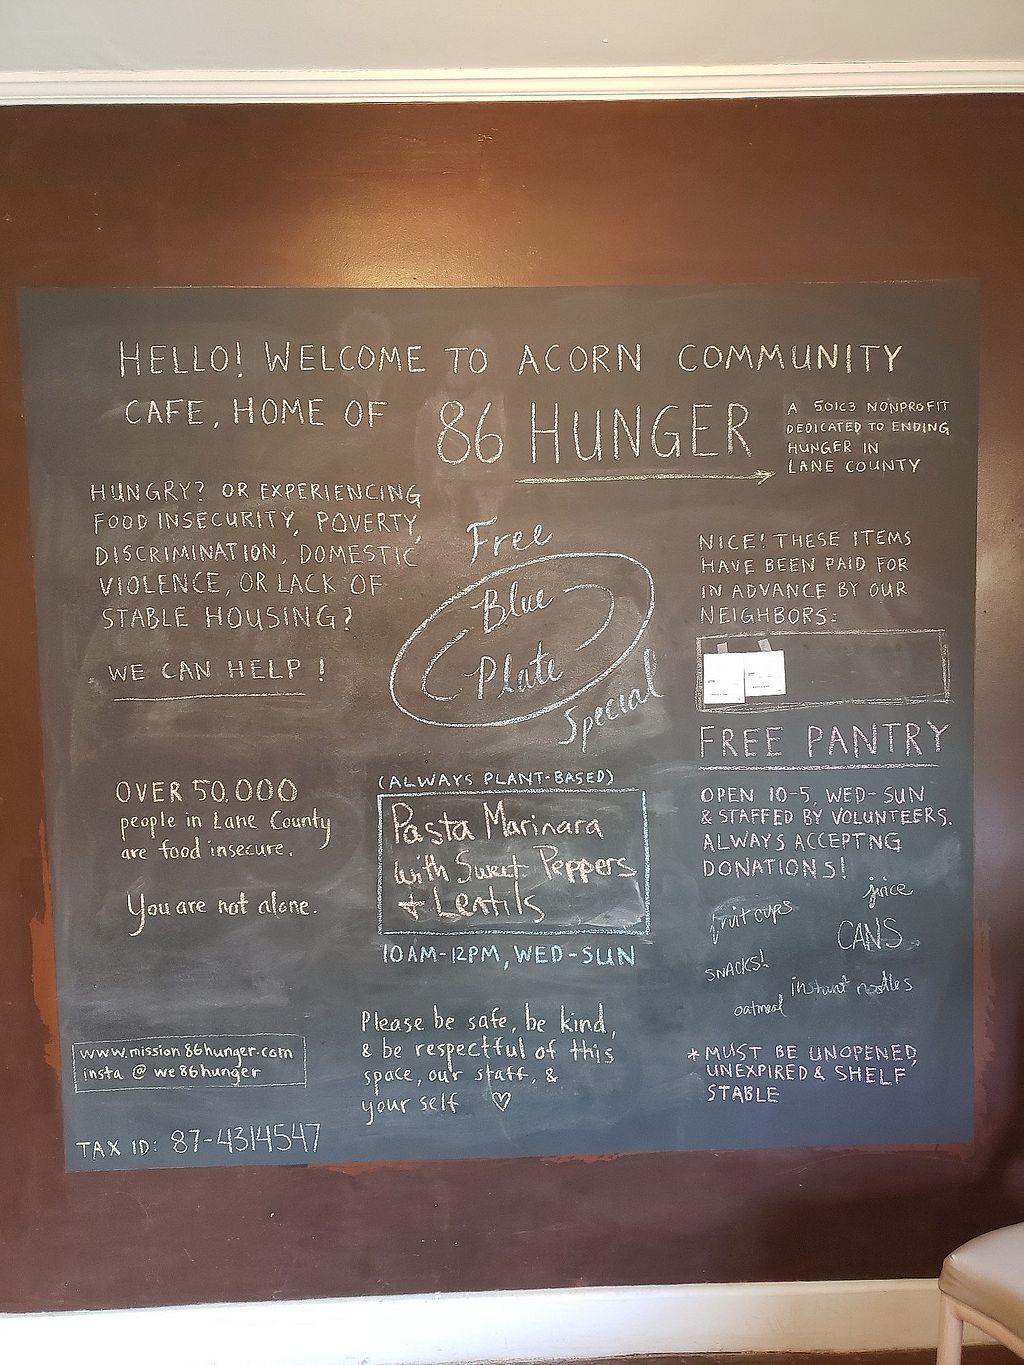 HELLO! WELCOME TO ACORN COMMUNITY
CAFE, HOME OF 86 HUNGER
A 501C3 NONPROFIT
DEDICATED TO ENDING
HUNGER IN
LANE COUNTY
HUNGRY? OR EXPERIENCING
FOOD INSECURITY, POVERTY,
DISCRIMINATION, DOMESTIC
VIOLENCE, OR LACK OF
STABLE HOUSING?
WE CAN HELP!
OVER 50,000
people in Lane County
are food insecure.
You are not alone.
www.mission86hunger.com
insta @ we86hunger
TAX ID: 87-4314547
Free
Blue
Plate
Special
(ALWAYS PLANT-BASED)
Pasta Marinara
with Sweet Peppers
+ Lentils
10AM-12PM, WED-SUN
Please be safe, be kind,
& be respectful of this
space, our staff, &
your self ♡
NICE! THESE ITEMS
HAVE BEEN PAID FOR
IN ADVANCE BY OUR
NEIGHBORS:
FREE PANTRY
OPEN 10-5, WED-SUN
& STAFFED BY VOLUNTEERS.
ALWAYS ACCEPTNG
DONATIONS!
juice
fruit cups
CANS
SNACKS!
instant noodles
oatmeal
*MUST BE UNOPENED,
UNEXPIRED & SHELF
STABLE